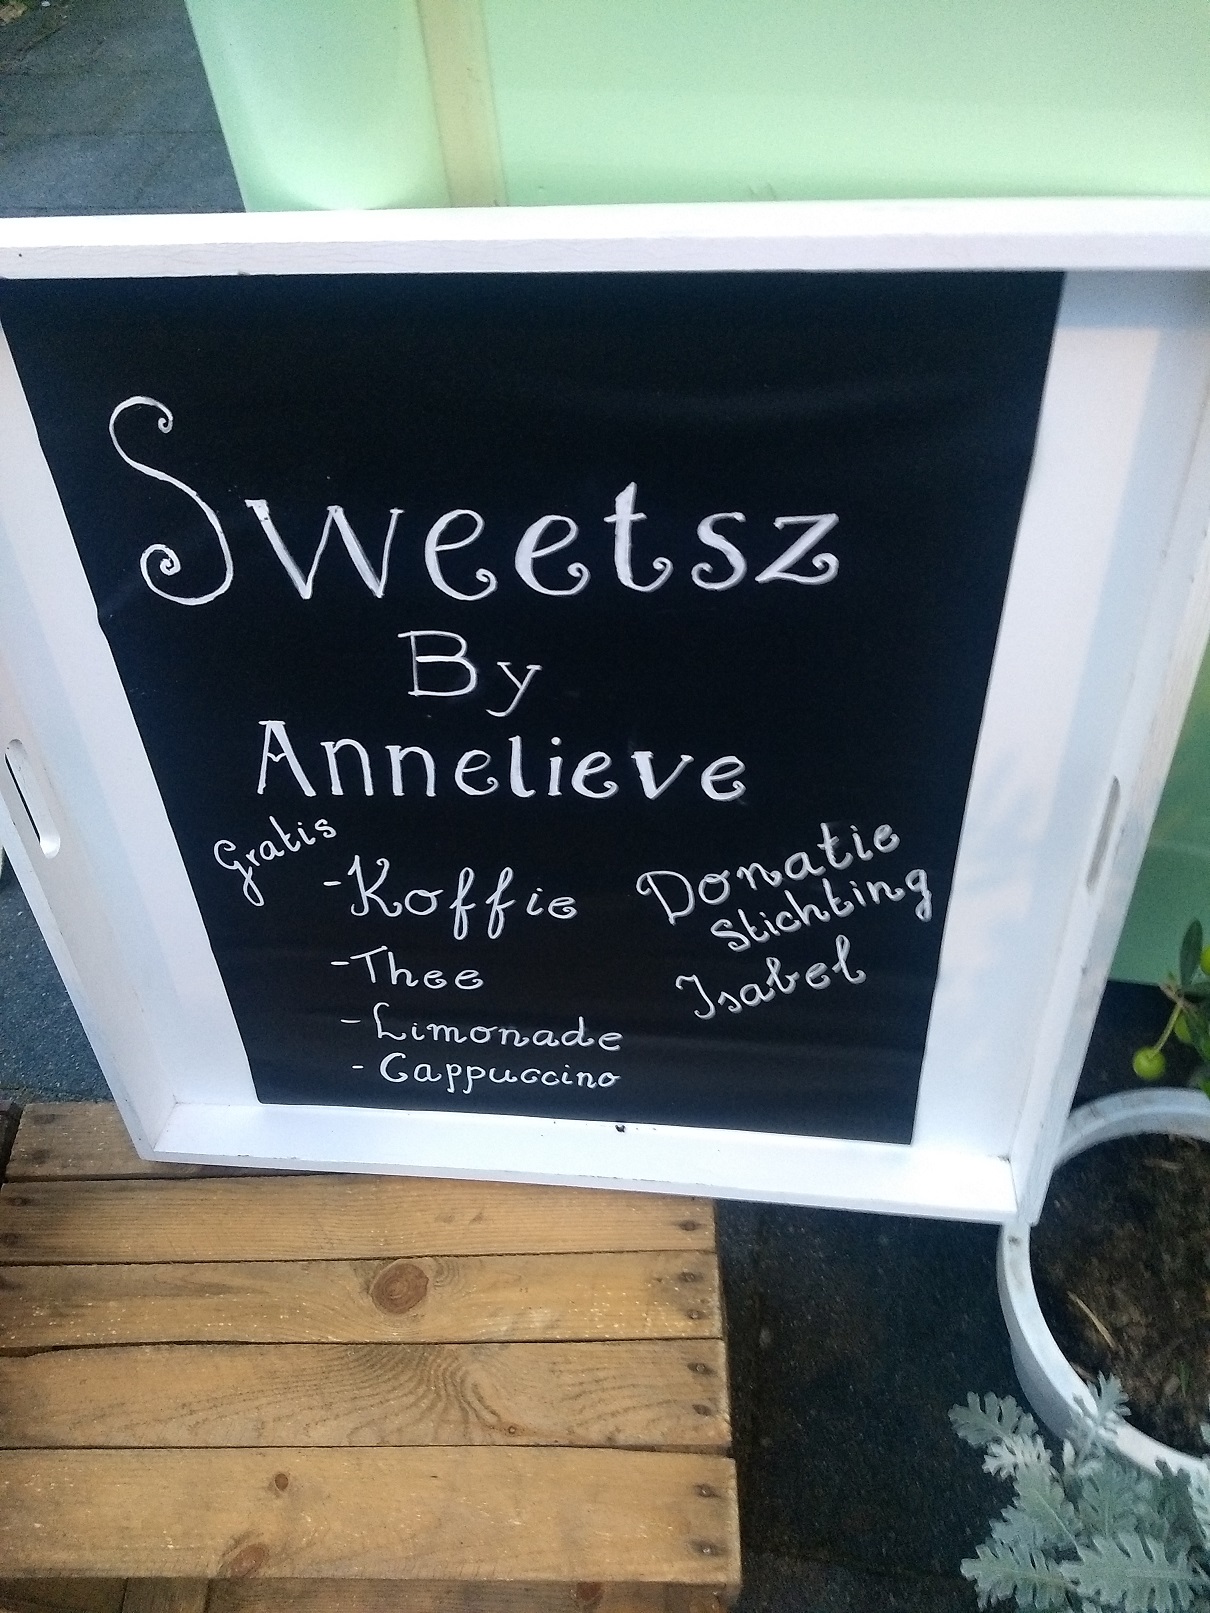 Sweetsz
By
Annelieve
Gratis
-Koffie
-Thee
-Limonade
-Cappuccino
Donatie
Stichting
Isabel